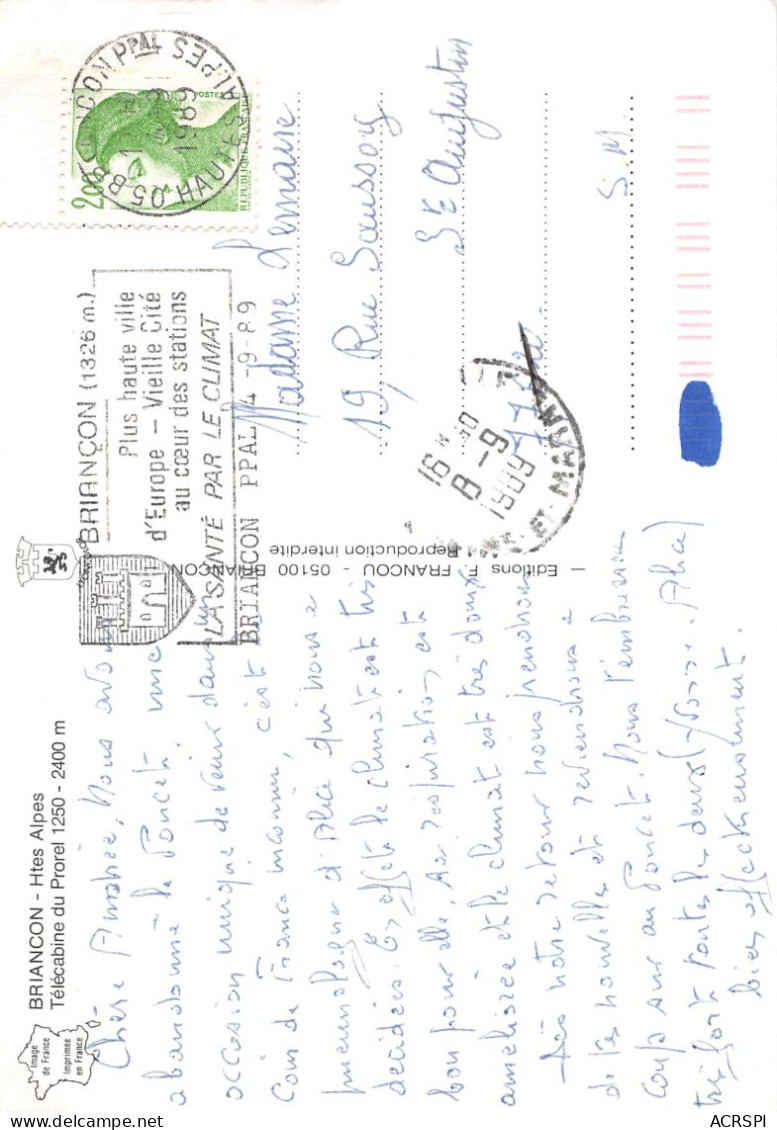 BRIANCON - Htes Alpes
Télécabine du Prorel 1250 - 2400 m
Image
de France
Imprimée
en France
Chère Andrée, Nous avons
abandonné le Poncet, une
occasion unique de venir dans un
Coin de France inconnu, c'est
pneumologue d'Alice qui nous a
décidées. En effet le climat est très
bon pour elle, sa respiration est
améliorée et le climat est très doux
Dès notre retour nous prendrons
de tes nouvelles et reviendrons à
coup sur au Poncet. Nous t'embrassons
très fort toutes les deux (Yvonne. Alice)
bien affectueusement.
Editions F. FRANCOU - 05100 BRIANCON
Reproduction interdite
BRIANÇON (1326 m.)
Plus haute ville
d'Europe - Vieille Cité
au cœur des stations
LA SANTÉ PAR LE CLIMAT
BRIANCON PPAL 4 -9-89
05 BRIANCON PPAL
1989
HAUTES ALPES
2,00
POSTES
REPUBLIQUE FRANCAISE
Madame Lemaire
19, Rue Saussoy
St Augustin
77
S. M.
16 H 30
8 -9
1989
ET MARNE
ACRSPI